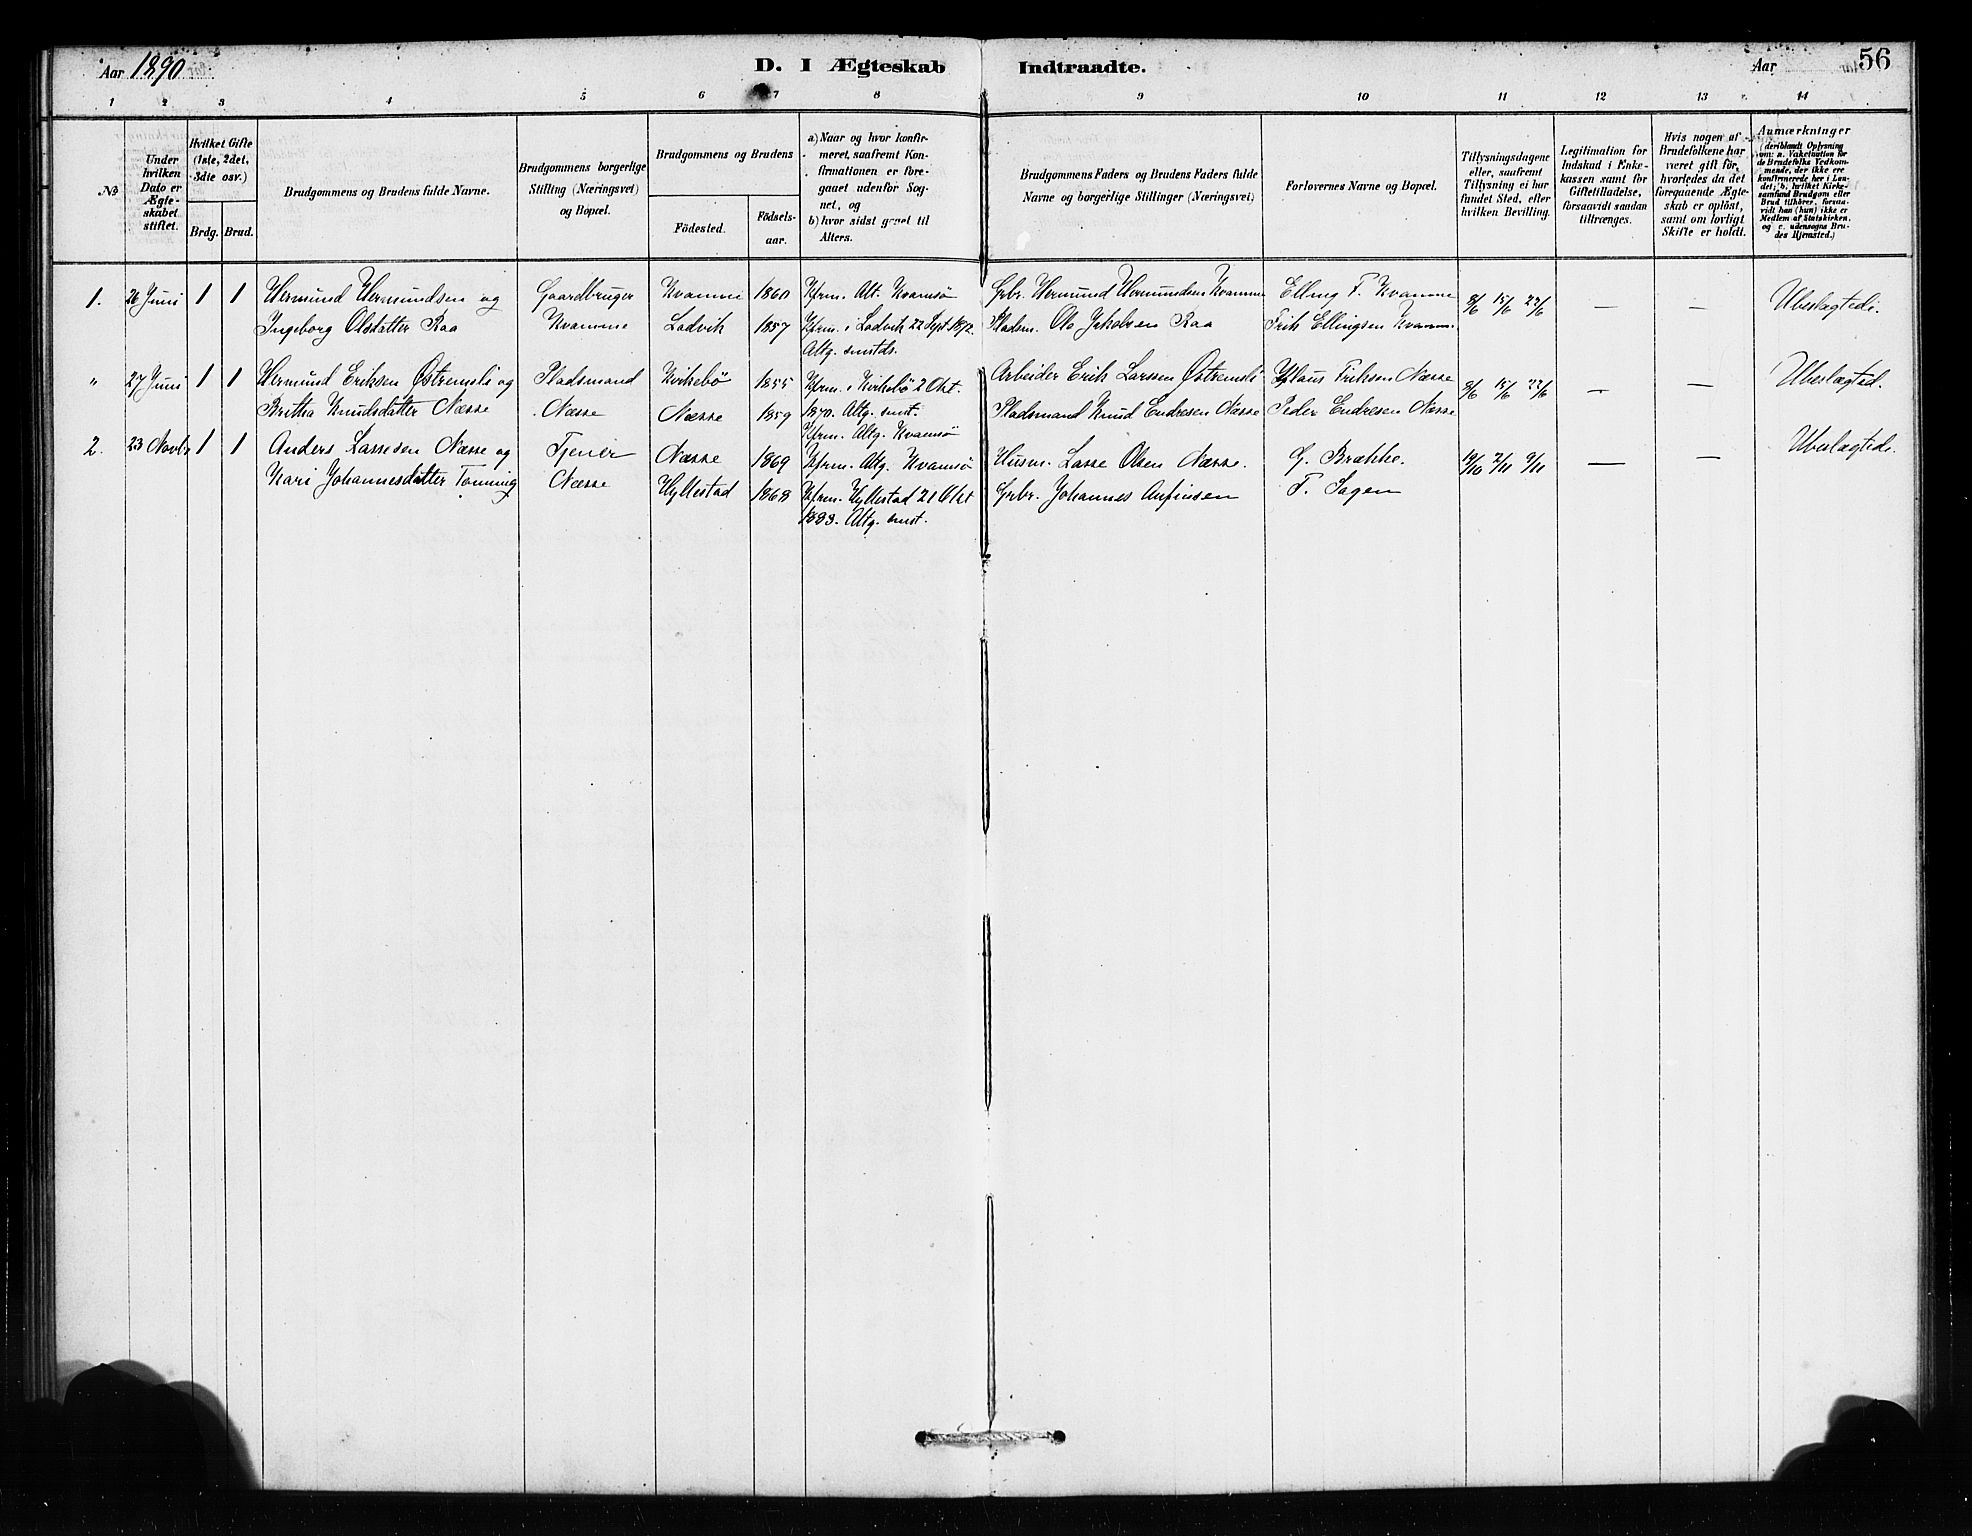 Aar 1890
D. I Ægteskab Indtraadte.
Aar
56
1 2 3 4 5 6 7 8 9 10 11 12 13 14
No
Under hvilken Dato er Ægteskabet stiftet.
Hvilket Gifte (1ste, 2det, 3die osv.)
Brdg. Brud.
Brudgommens og Brudens fulde Navne.
Brudgommens borgerlige Stilling (Næringsvei) og Bopæl.
Brudgommens og Brudens
Födested. Födselsaar.
a) Naar og hvor konfirmeret, saafremt Konfirmationen er foregaaet udenfor Sognet, og
b) hvor sidst gaaet til Alters.
Brudgommens Faders og Brudens Faders fulde Navne og borgerlige Stillinger (Næringsvei)
Forlovernes Navne og Bopæl.
Tillysningsdagene eller, saafremt Tillysning ei har fundet Sted, efter hvilken Bevilling.
Legitimation for Indskud i Enkekassen samt for Giftetilladelse, forsaavidt saadan tiltrænges.
Hvis nogen af Brudefolkene har været gift før, hvorledes da det foregaaende Ægteskab er oplöst, samt om lovligt Skifte er holdt.
Anmærkninger (deriblandt Oplysning om: a. Vakcination for de Brudefolks Vedkommende, der ikke ere konfirmerede her i Landet; b. hvilket Kirkesamfund Brudgom eller Brud tilhörer, forsaavidt han (hun) ikke er Medlem af Statskirken, og c. udensogns Brudes Hjemsted.)
1. 26 Juni 1 1 Hermund Hermundsen og Gaardbruger Kvamme 1860 Kfrm. Alt. Kvamsø Gbr. Hermund Hermundsen Kvamme Elling F. Kvamme 8/6 15/6 22/6 — — Ubeslægtede.
Ingeborg Olsdatter Raa Kvamme Ladvik 1857 Kfrm. i Ladvik 22 Sept 1872. Pladsm. Ole Jakobsen Raa Erik Ellingsen Kvamm.
Altg. smstds.
" 27 Juni 1 1 Hermund Eriksen Østremsli og Pladsmand Kvikebø 1855 Kfrm. i Kvikebø 2 Okt. Arbeider Erik Larssen Østremsli Klaus Eriksen Næsse 8/6 15/6 22/6 — — Ubeslægtad.
Britha Knudsdatter Næsse Næsse Næsse 1859 1870. Altg. smst. Pladsmand Knud Endresen Næsse Peder Endresen Næsse
Kfrm. Altg. Kvamsø
2. 23 Novbr 1 1 Anders Lassesen Næsse og Tjener Næsse 1869 Kfrm. Altg. Kvamsø Husm. Lasse Olsen Næsse. G. Brække. 19/10 2/11 9/11 — — Ubeslægtede.
Kari Johannesdatter Tonning Næsse Hyllestad 1868 Kfrm. Hyllestad 21 Okt Gbr. Johannes Anfinsen T. Sagen
1883. Altg. smst.